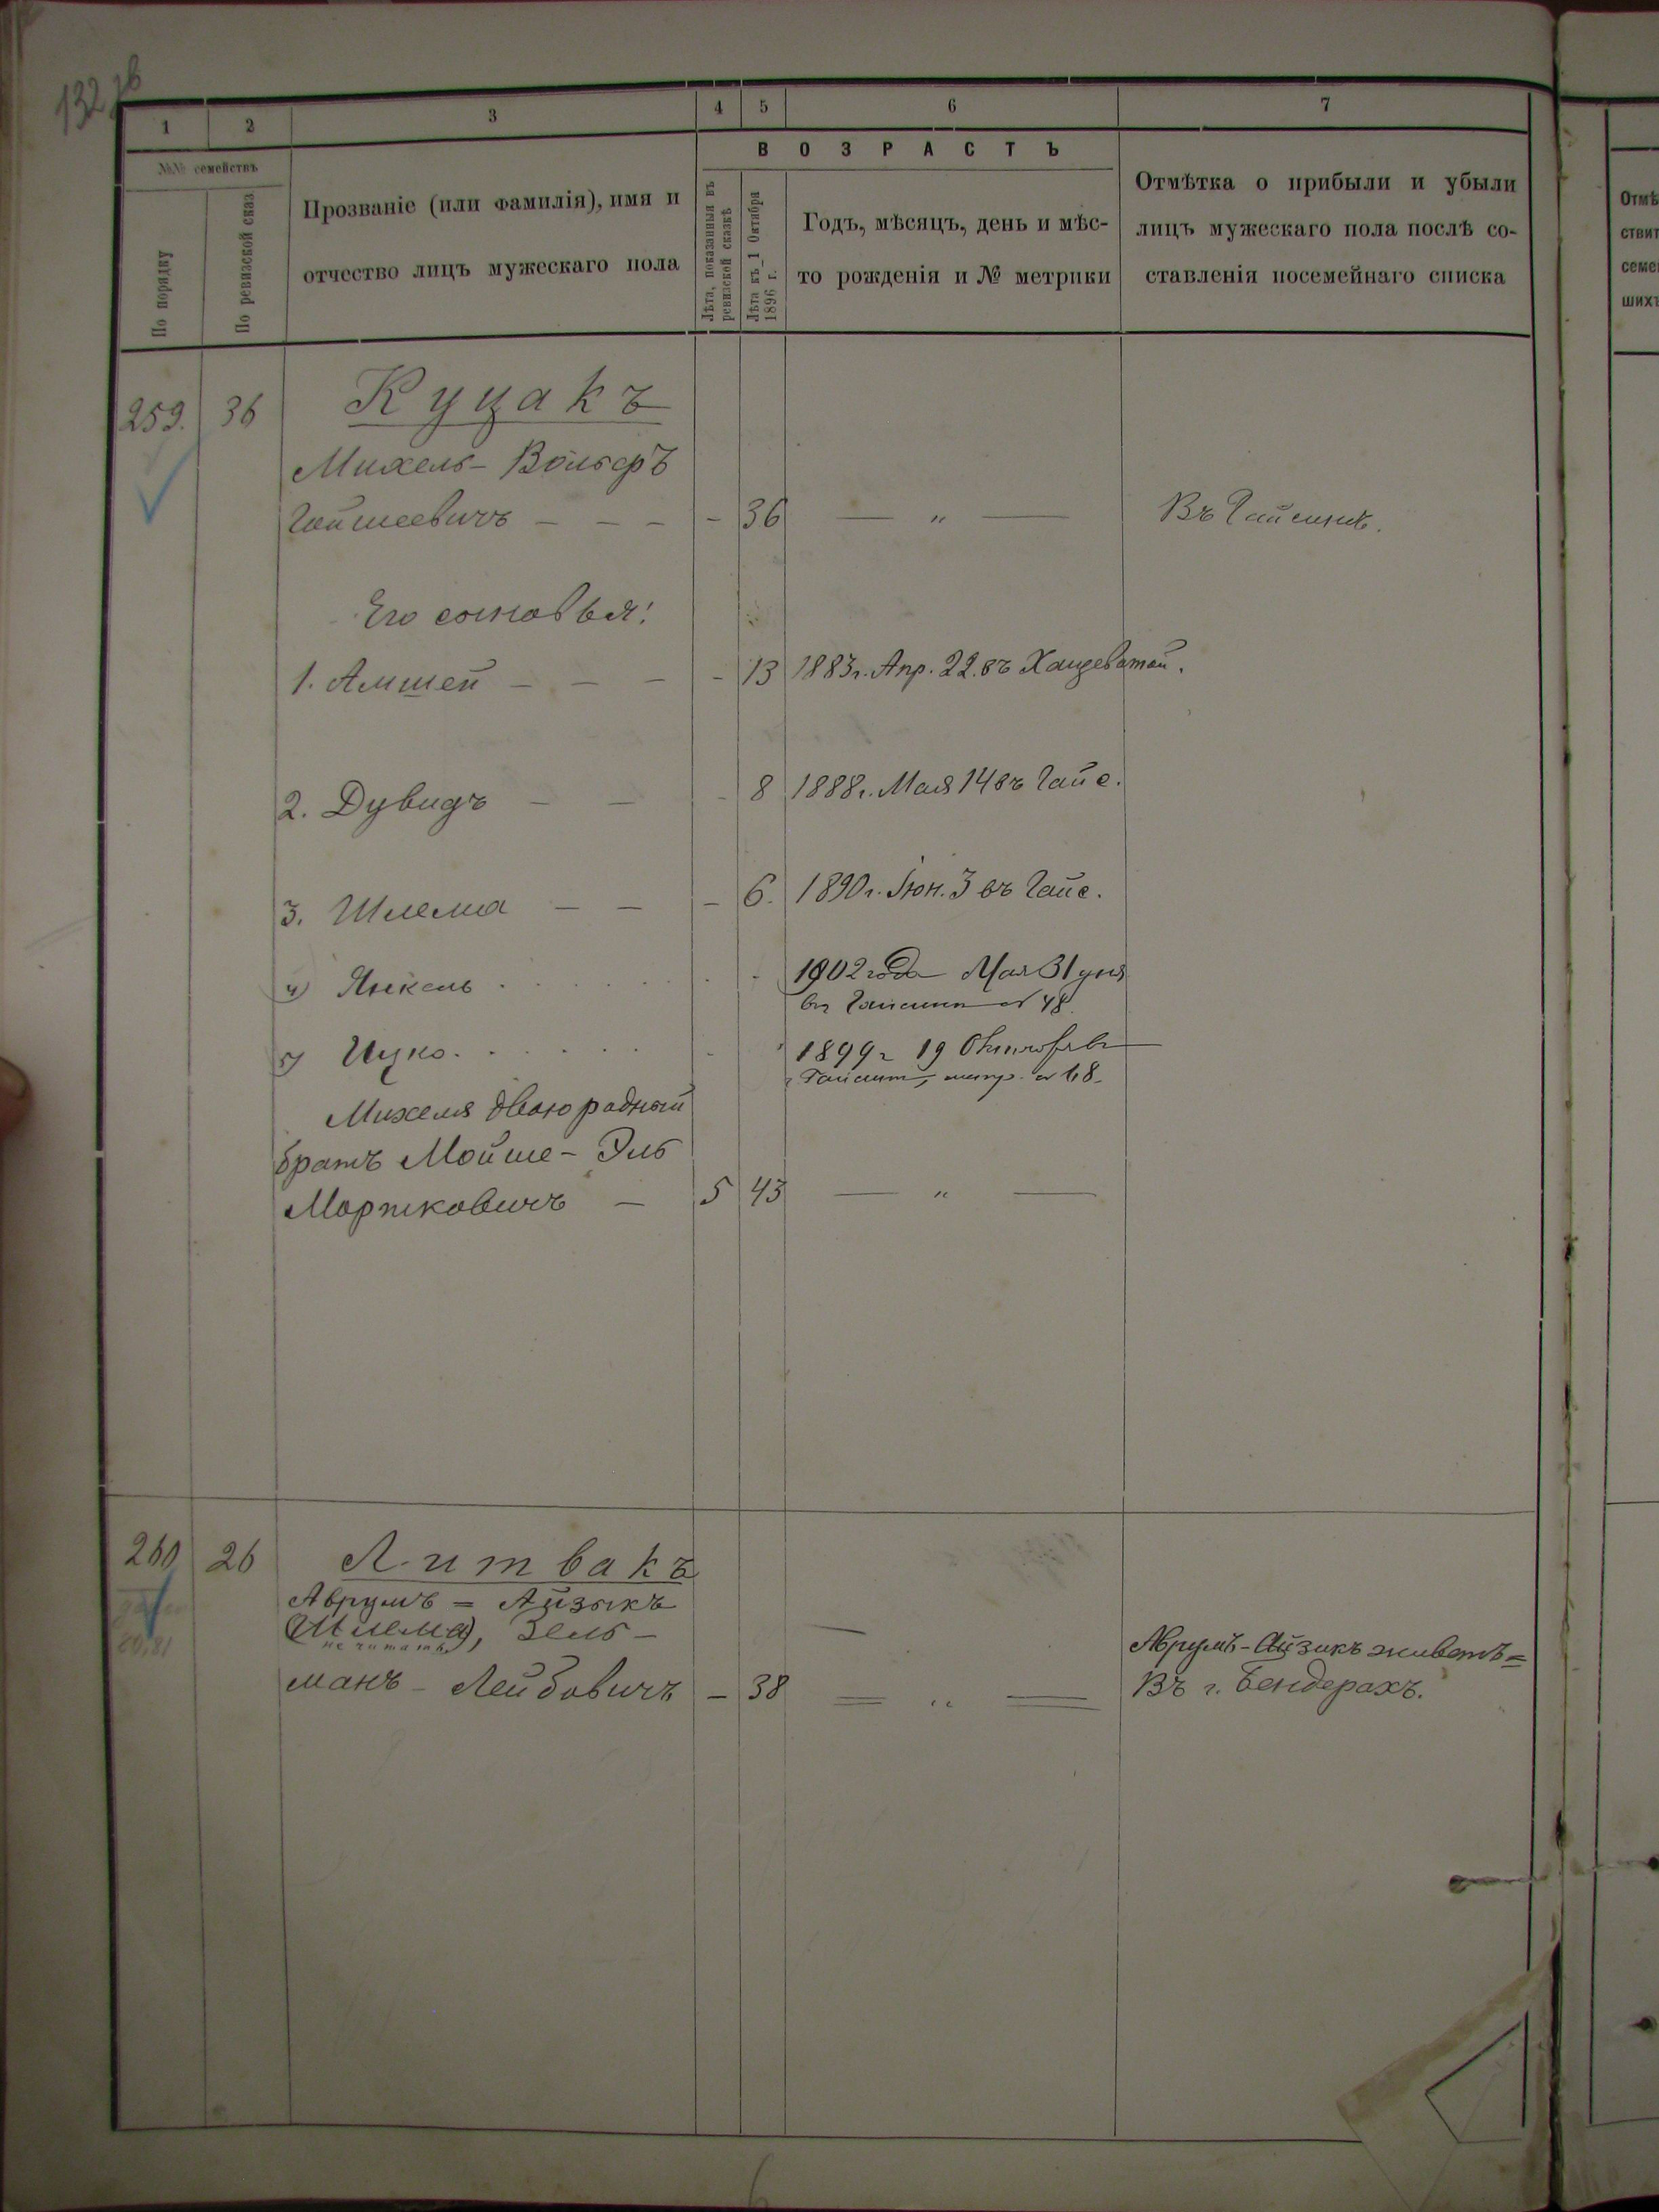 132 об
1 2 3 4 5 6 7
№№ семействъ
По порядку
По ревизской сказ.
Прозваніе (или фамилія), имя и
отчество лицъ мужескаго пола
ВОЗРАСТЪ
Лѣта, показанныя въ
ревизской сказкѣ
Лѣта къ 1 Октября
1896 г.
Годъ, мѣсяцъ, день и мѣс-
то рожденія и № метрики
Отмѣтка о прибыли и убыли
лицъ мужескаго пола послѣ со-
ставленія посемейнаго списка
259. 36 Куцакъ
Михель-Вольфъ
Гойшеевичъ - - - - 36 — " — Въ Гайсинѣ.
Его сыновья:
1. Амшей - - - - 13 1883 г. Апр. 22. въ Хащеватой.
2. Дувидъ - - - 8 1888 г. Мая 14 въ Гайс.
3. Шлема - - - 6. 1890 г. Іюн. 3 въ Гайс.
4) Янкель . . . . . 1902 года Мая 31 дня
въ Гайсинѣ № 48
5) Ицко . . . . . . 1899 г 19 Октября въ
Гайсинѣ, метр. №
Михеля двоюродный
братъ Мойше-Эль
Мортковичъ - 5 43 — " —
260 26 Литвакъ
Аврумъ = Айзыкъ
(Шлема), Зель-
не читать
манъ - Лейбовичъ - 38 — " —
Аврумъ-Айзикъ живетъ=
Въ г. Бендерахъ.
Отмѣ
ствит
семе
шихъ